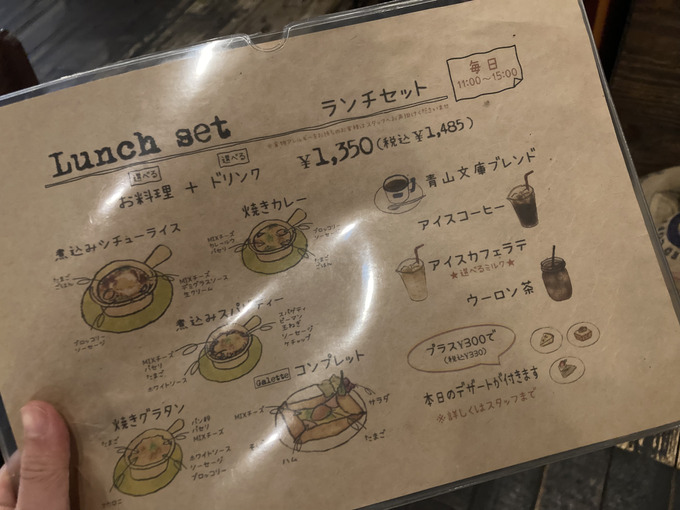 Lunch set
ランチセット
毎日
11:00～15:00
¥1,350(税込¥1,485)
選べる
お料理
+
選べる
ドリンク
煮込みシチューライス
たまご
ごはん
MIXチーズ
デミグラスソース
生クリーム
ブロッコリー
ソーセージ
焼きカレー
MIXチーズ
カレールウ
パセリ
ブロッコリー
ソーセージ
たまご
ごはん
煮込みスパゲティー
MIXチーズ
パセリ
たまご
ホワイトソース
スパゲティ
ピーマン
玉ねぎ
ソーセージ
ケチャップ
焼きグラタン
たまご
パン粉
パセリ
MIXチーズ
ホワイトソース
ソーセージ
ブロッコリー
マカロニ
Galette
コンプレット
MIXチーズ
サラダ
たまご
ハム
青山文庫ブレンド
アイスコーヒー
アイスカフェラテ
★選べるミルク★
ウーロン茶
プラス¥300で
(税込¥330)
本日のデザートが付きます
※詳しくはスタッフまで